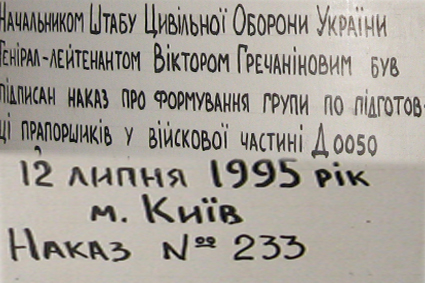 Начальником Штабу Цивільної Оборони України
Генірал-лейтенантом Віктором Гречаніновим був
підписан наказ про формування групи по підготов-
ці прапорщиків у війскової частині Д0050
12 липня 1995 рік
м. Київ
Наказ № 233